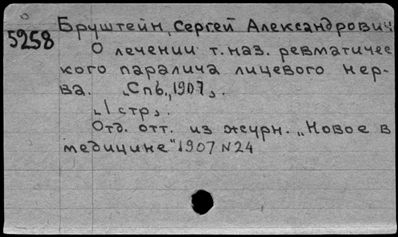 Бруштейн, Сергей Александрович
5258
О лечении т. наз. ревматичес
кого паралича лицевого нер-
ва. „Спб., 1907„.
„1 стр„.
Отд. отт. из журн. „Новое в
медицине" 1907 N24